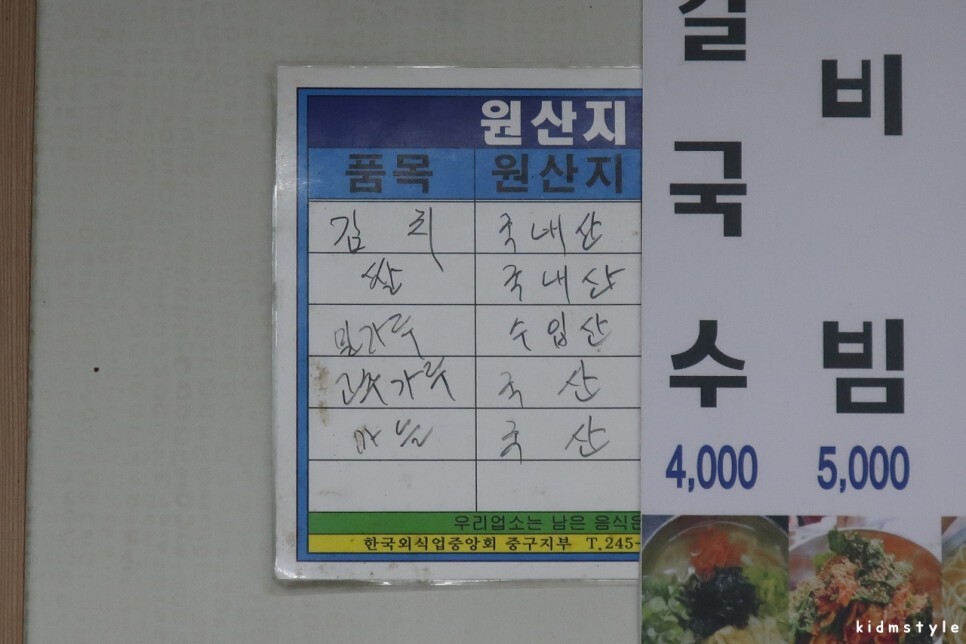 원산지
품목 원산지
김치 국내산
쌀 국내산
밀가루 수입산
고춧가루 국산
마늘 국산
우리업소는 남은 음식은
한국외식업중앙회 중구지부 T.245-
칼국수
4,000
비빔
5,000
kidmstyle